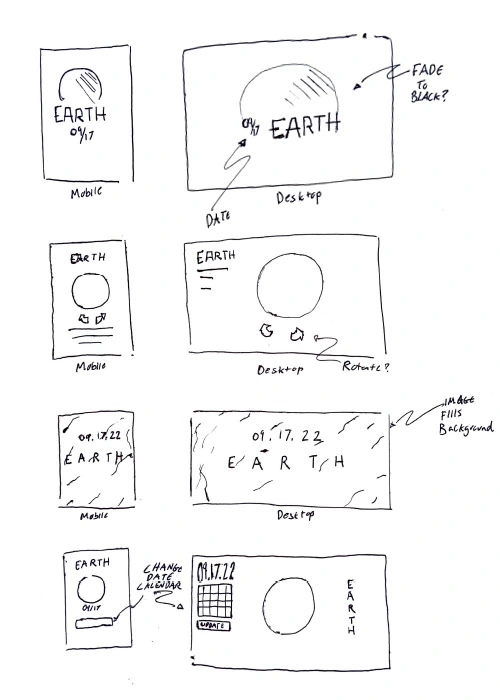 EARTH
09/17
Mobile
09/17 EARTH
Desktop
DATE
FADE
TO
BLACK?
EARTH
Mobile
EARTH
Desktop
Rotate?
09.17.22
EARTH
Mobile
09.17.22
EARTH
Desktop
IMAGE
Fills
Background
EARTH
09/17
CHANGE
DATE
CALENDAR
09.17.22
UPDATE
EARTH